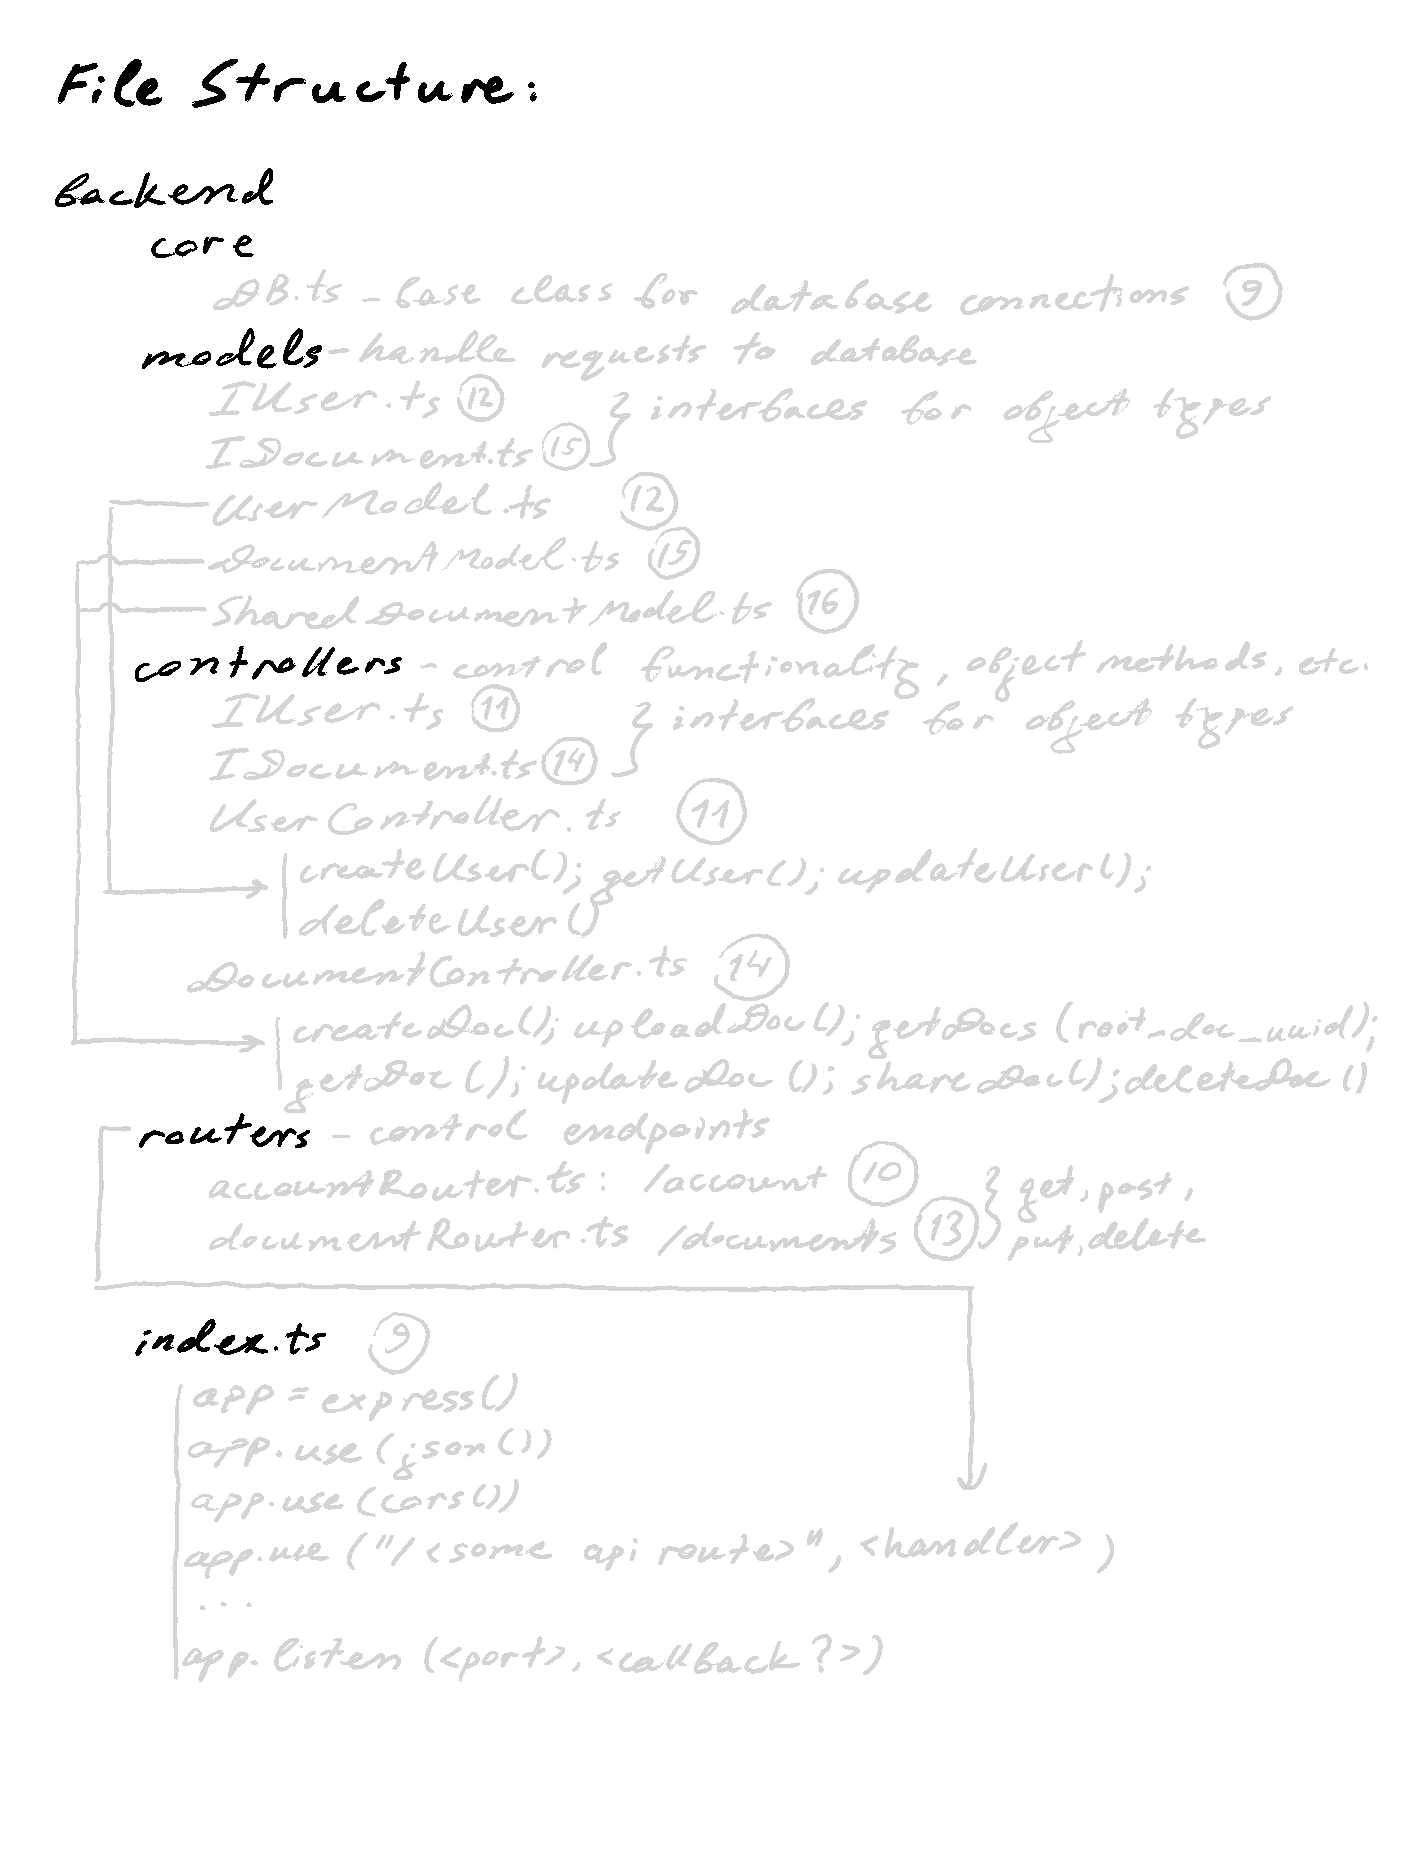 File Structure:
backend
core
DB.ts - base class for database connections 9
models - handle requests to database
IUser.ts 12 } interfaces for object types
IDocument.ts 15
UserModel.ts 12
DocumentModel.ts 15
SharedDocumentModel.ts 16
controllers - control functionality, object methods, etc.
IUser.ts 11 } interfaces for object types
IDocument.ts 14
UserController.ts 11
createUser(); getUser(); updateUser();
deleteUser()
DocumentController.ts 14
createDoc(); uploadDoc(); getDocs (root_doc_uuid);
getDoc (); updateDoc (); shareDoc(); deleteDoc ()
routers - control endpoints
accountRouter.ts: /account 10 } get, post,
documentRouter.ts /documents 13 put, delete
index.ts 9
app = express()
app.use (json())
app.use (cors())
app.use ("/<some api route>", <handler>)
...
app.listen (<port>, <callback?>)